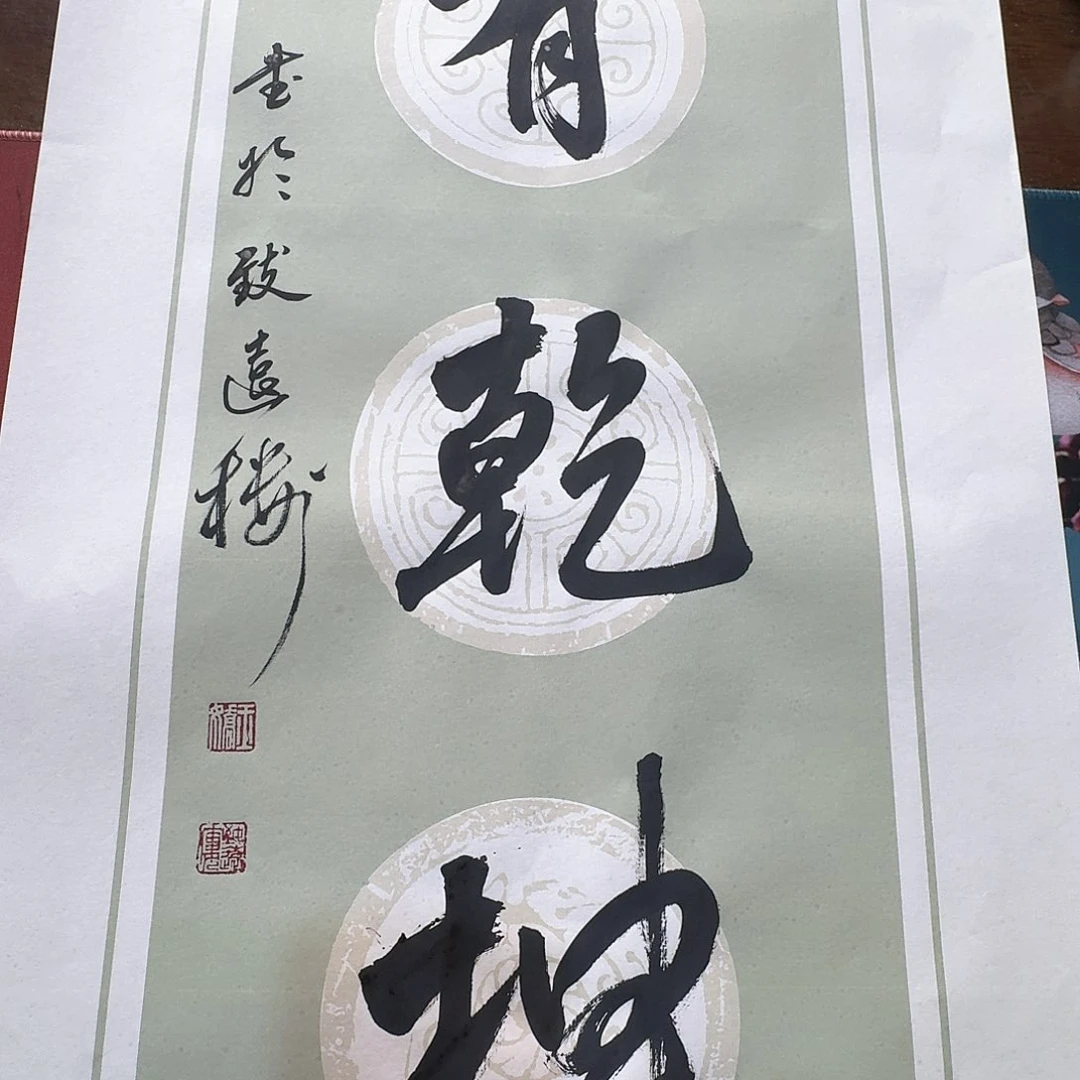 有乾坤
書於致遠樓